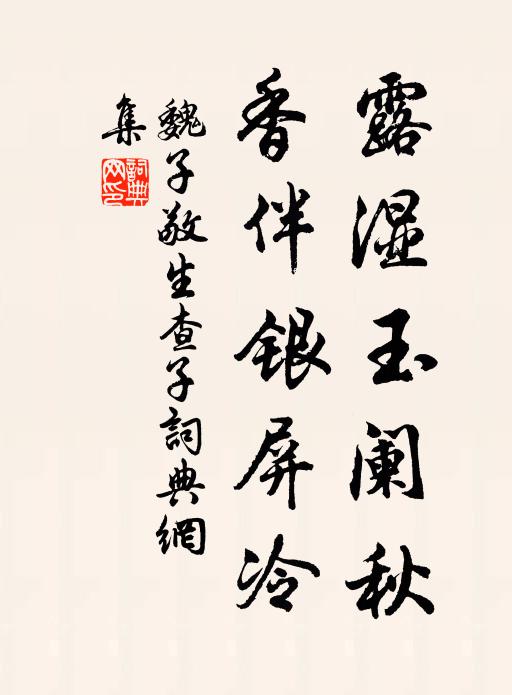 露湿玉阑秋
香伴银屏冷
魏子敬生查子詞典網
集
詞典網印